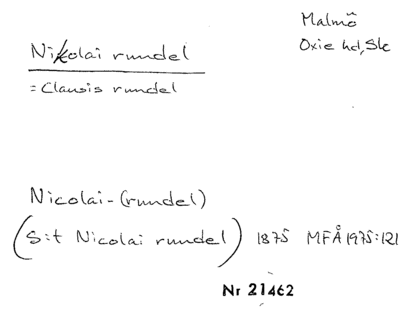 Malmö
Oxie hd, Sk
Nikolai rundel
= Clausis rundel
Nicolai-(rundel)
(S:t Nicolai rundel) 1875 MFÅ 1975:121
Nr 21462